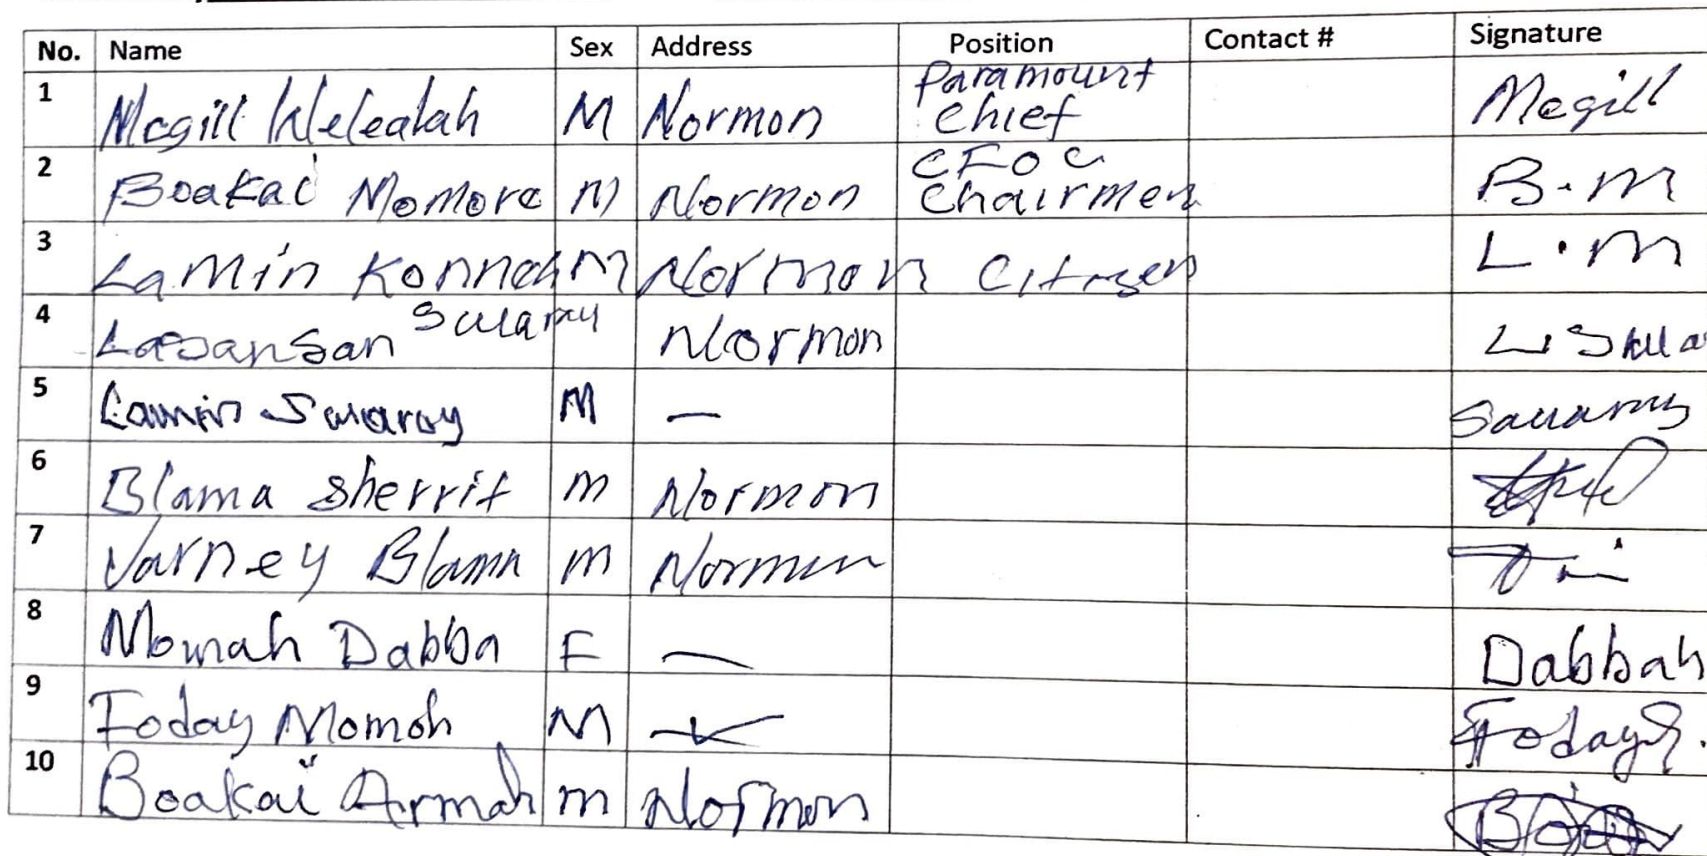 No. Name Sex Address Position Contact # Signature
1 Mcgill Welealah M Normon Paramount Chief Mcgill
2 Boakai Momore M Normon CFOC Chairmen B.M
3 Lamin Konneh M Normon Citizen L.M
4 Lasansan Swaray Normon
5 Lamin Swaray M — Swaray
6 Blama Sherrif M Normon
7 Varney Blama M Normon
8 Momah Dabba F — Dabbah
9 Foday Momoh M Foday
10 Boakai Armah M Normon